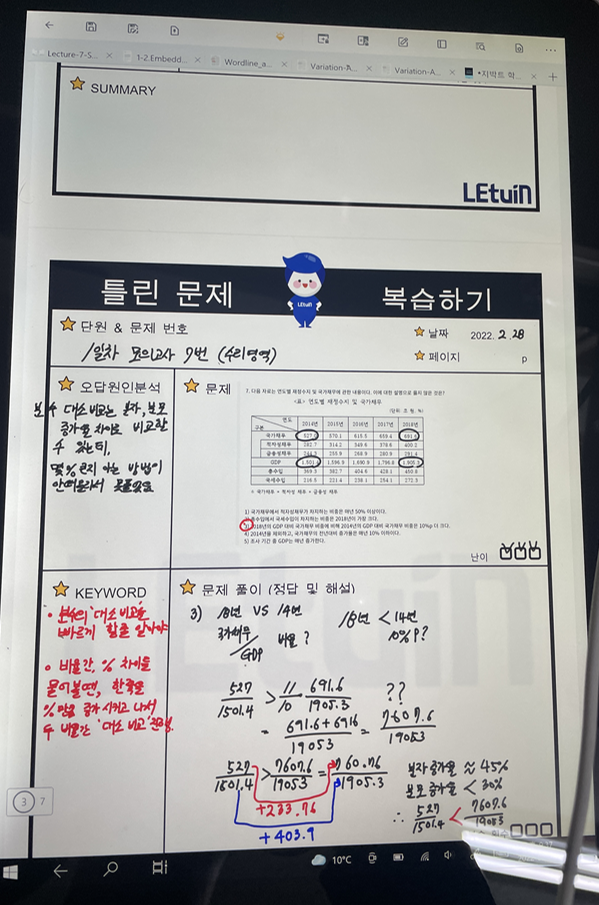 Lecture-7-S...
1-2.Embedd...
Wordline_a...
Variation-A...
Variation-A...
SUMMARY
LEtuiN
틀린 문제
복습하기
LEtuiN
단원 & 문제 번호
날짜 2022. 2. 28
1일차 모의고사 7번 (수리영역)
페이지 p
오답원인분석
분수 대소비교는 분자, 분모
증가율 차이로 비교할
수 있는데,
몇 %인지 아는 방법이
안떠올라서 못풀었음
문제
7. 다음 자료는 연도별 재정수지 및 국가채무에 관한 내용이다. 이에 대한 설명으로 옳지 않은 것은?
<표> 연도별 재정수지 및 국가채무
(단위: 조 원, %)
구분 연도 2014년 2015년 2016년 2017년 2018년
국가채무
적자성채무 282.7 314.2 349.6 376.6 400.2
금융성채무 255.9 268.9 280.9 291.4
GDP 1,501.4
총수입 369.3 382.7 404.6 428.1 450.8
국세수입 216.5 221.4 238.1 254.1 272.3
※ 국가채무 = 적자성 채무 + 금융성 채무
1) 국가채무에서 적자성채무가 차지하는 비중은 매년 50% 이상이다.
2) 총수입에서 국세수입이 차지하는 비중은 2018년이 가장 크다.
3) 2018년의 GDP 대비 국가채무 비중에 비해 2014년의 GDP 대비 국가채무 비중은 10%p 더 크다.
4) 2014년을 제외하고, 국가채무의 전년대비 증가율은 매년 10% 이하이다.
5) 조사 기간 중 GDP는 매년 증가한다.
난이
KEYWORD
• 분수의 '대소비교'는
빠르게 할줄 알아야
• 비율간, % 차이를
물어볼땐, 한쪽을
% 만큼 증가 시키고 나서
두 비율간 '대소 비교'
문제 풀이 (정답 및 해설)
3) 18년 VS 14년
18년 < 14년
국가채무/GDP 비율?
10%P?
527/1501.4 > 11/10 · 691.6/1905.3 ??
= 691.6+6916/19053 = 7607.6/19053
527/1501.4 > 7607.6/19053 = 760.76/1905.3
+233.76
+403.9
분자증가율 ≈ 45%
분모증가율 < 30%
∴ 527/1501.4 < 7607.6/19053
3 7
10°C